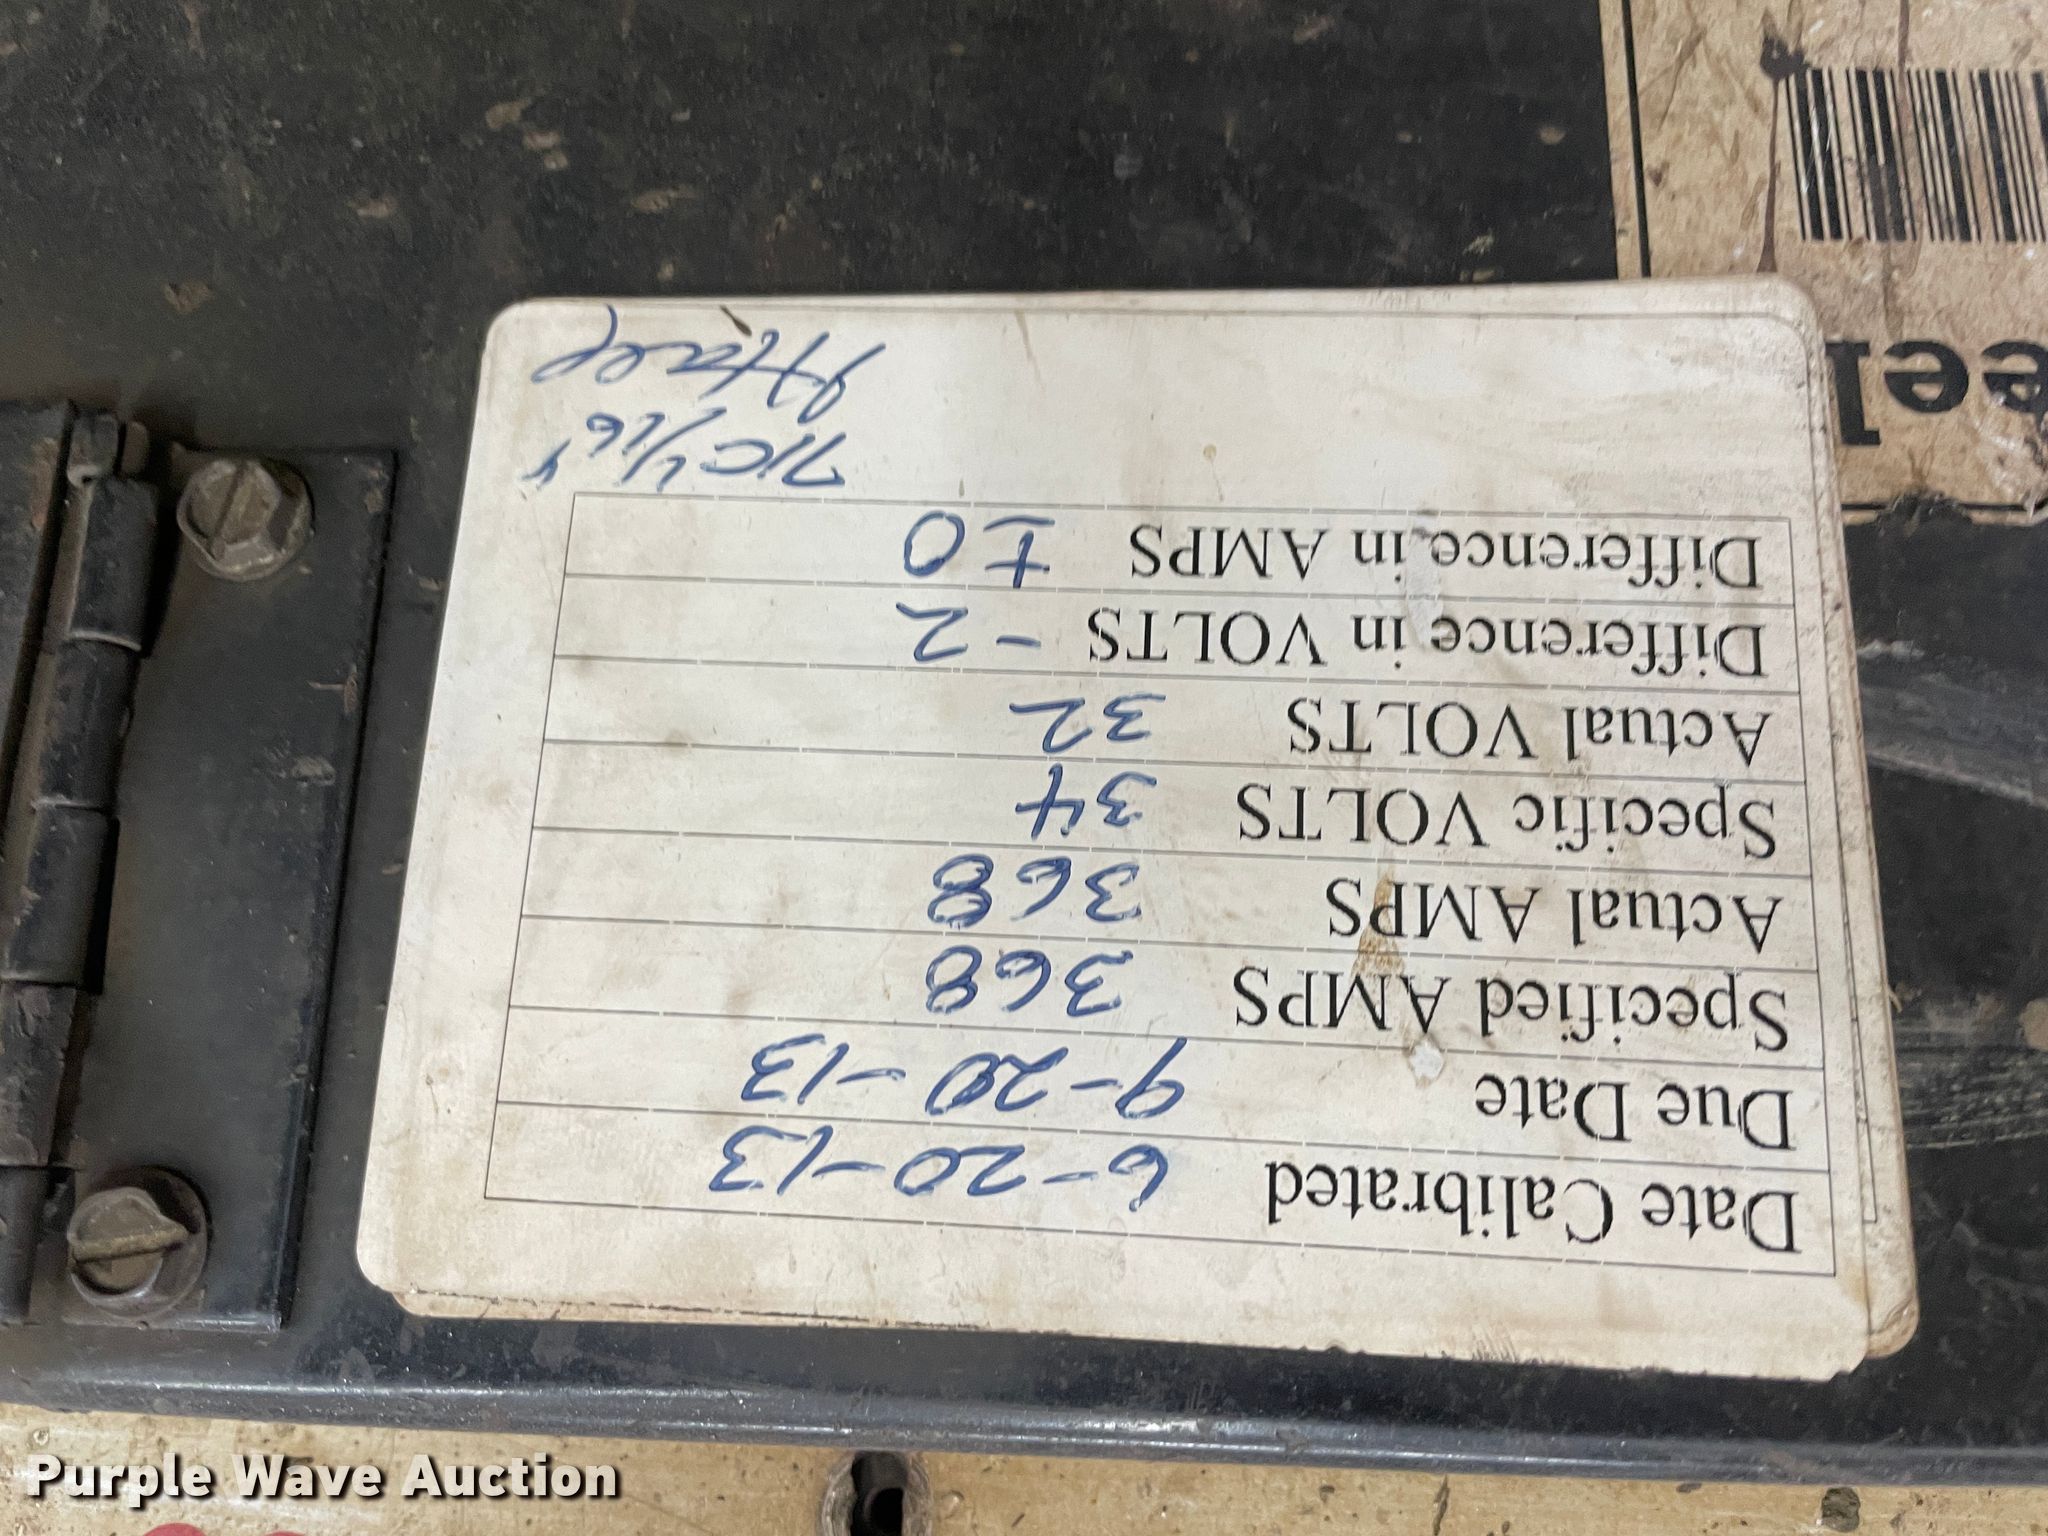 Date Calibrated 6-20-13
Due Date 9-20-13
Specified AMPS 368
Actual AMPS 368
Specific VOLTS 34
Actual VOLTS 32
Difference in VOLTS -2
Difference in AMPS ±0
Purple Wave Auction